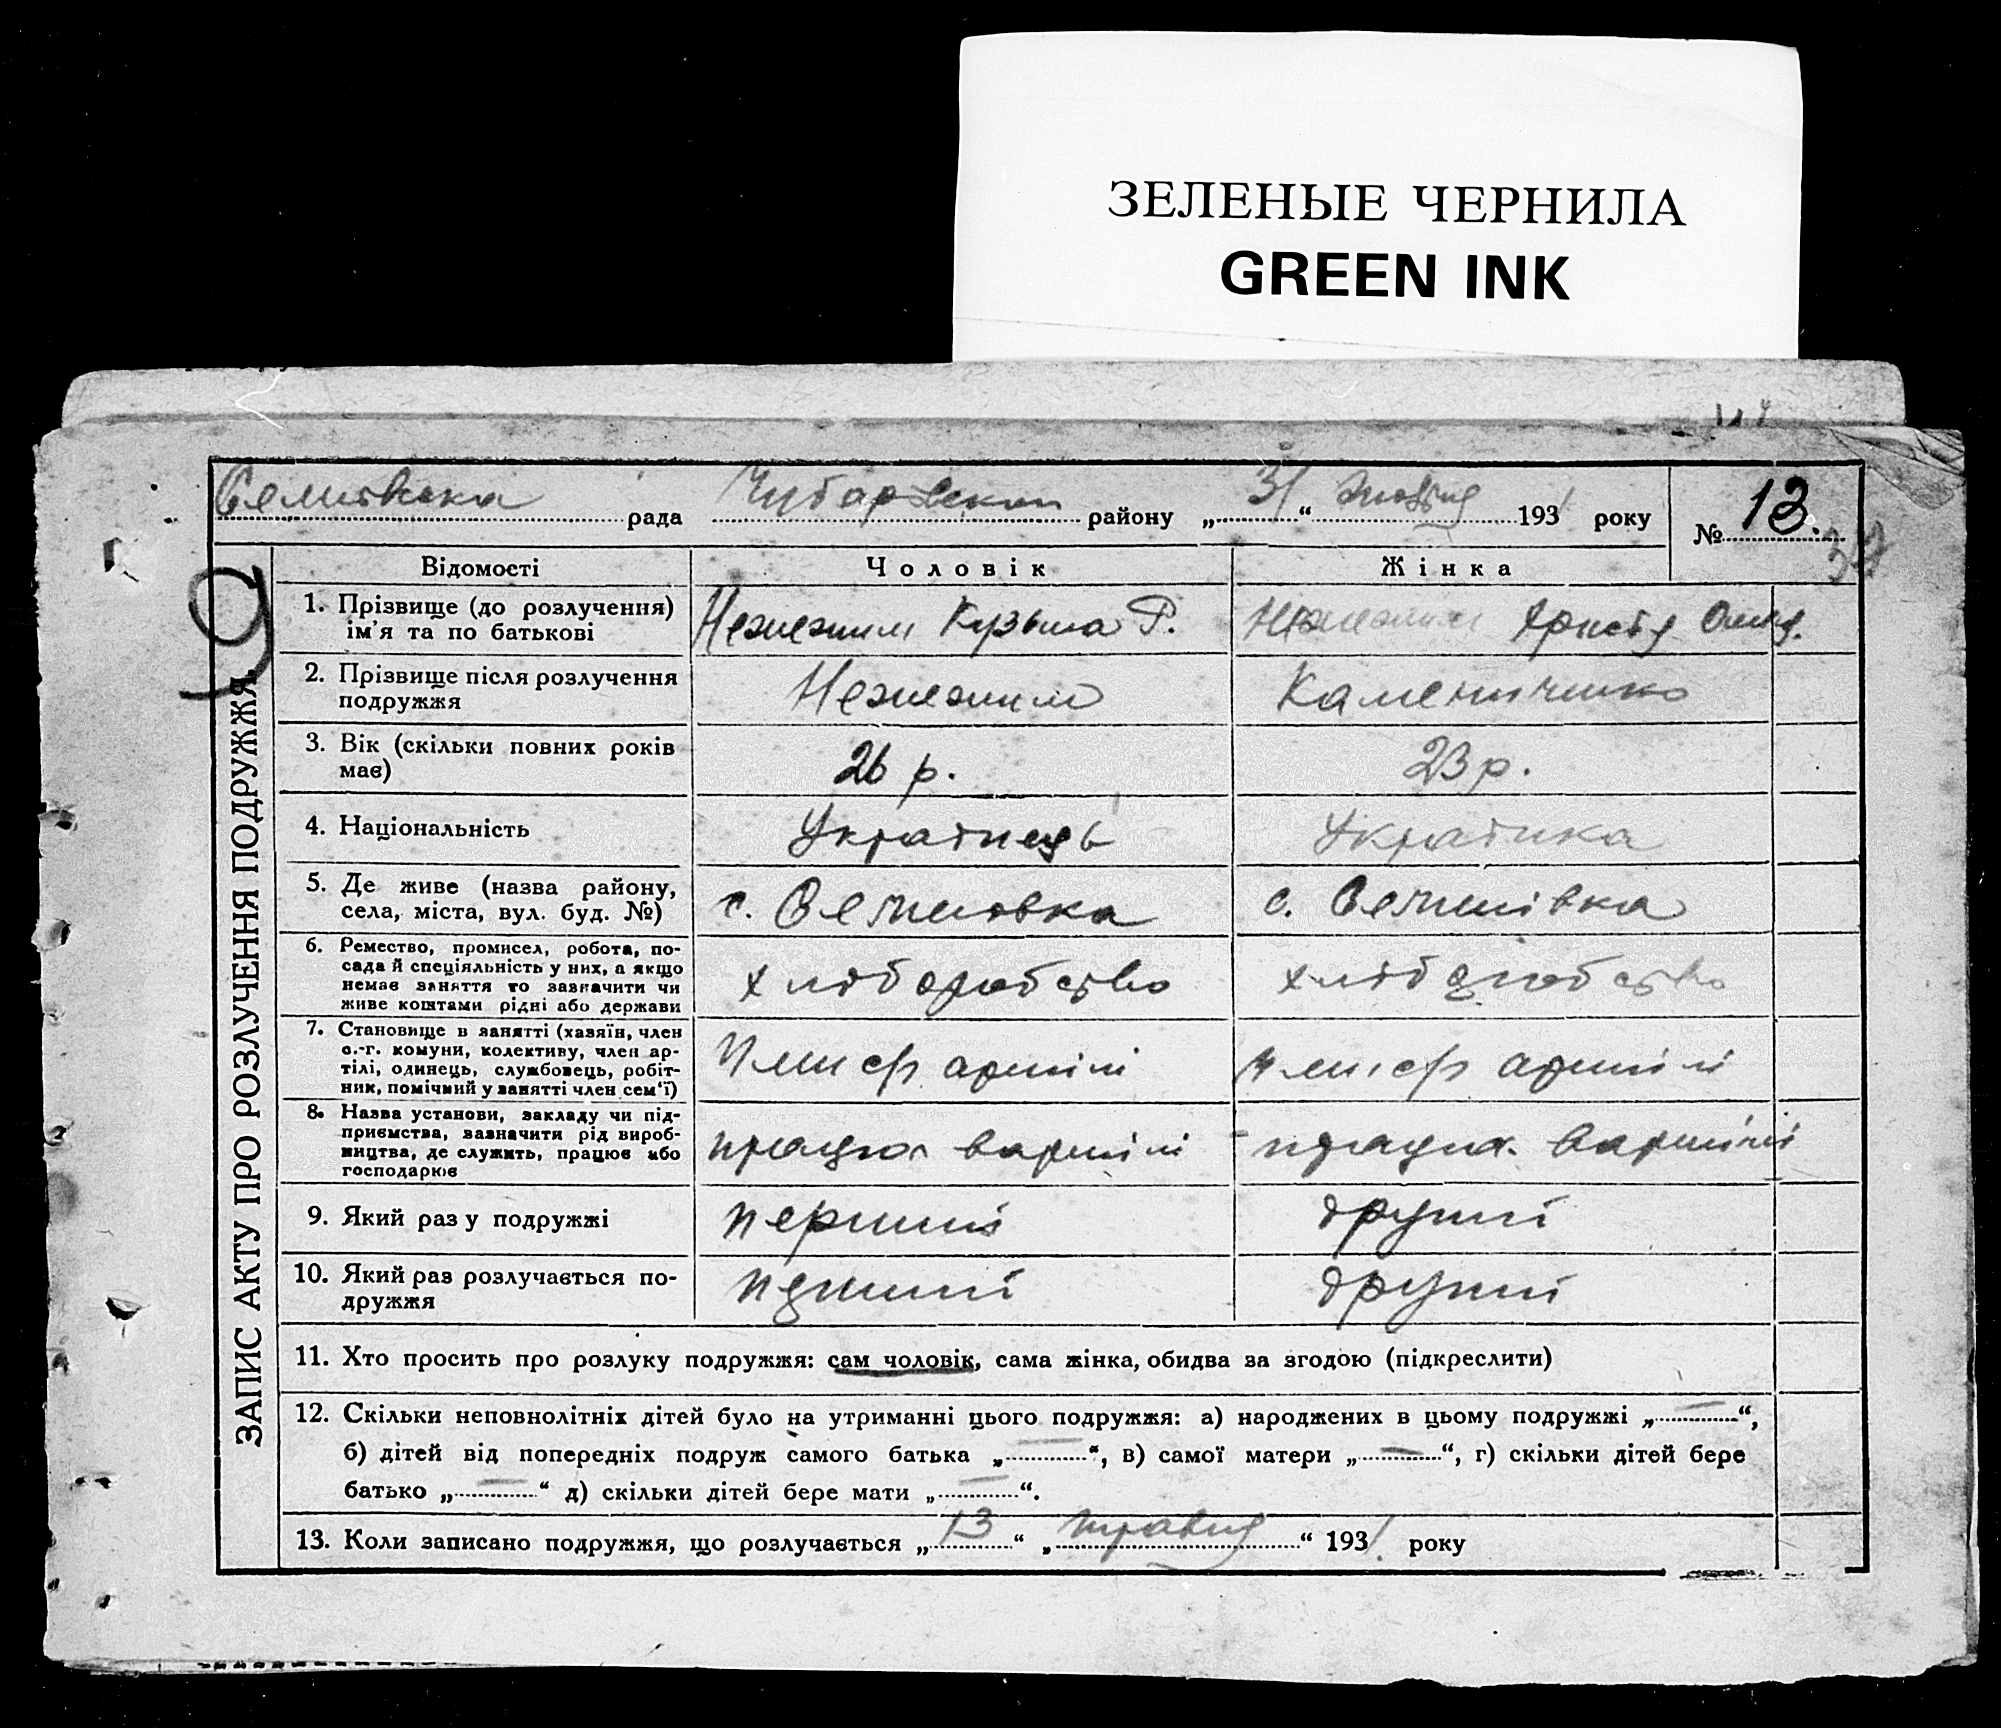 ЗЕЛЕНЫЕ ЧЕРНИЛА
GREEN INK
рада району „31“ 1931 року № 13.
ЗАПИС АКТУ ПРО РОЗЛУЧЕННЯ ПОДРУЖЖЯ
Відомості Чоловік Жінка
1. Прізвище (до розлучення)
ім'я та по батькові
Нежежим Кузьма Р. Нежежим
2. Прізвище після розлучення
подружжя
Нежежим
3. Вік (скільки повних років
має)
26 р. 23 р.
4. Національність Українець Українка
5. Де живе (назва району,
села, міста, вул. буд. №)
с. с.
6. Ремество, промисел, робота, по-
сада й спеціяльність у них, а якщо
немає заняття то зазначити чи
живе коштами рідні або держави
хліборобство хліборобство
7. Становище в занятті (хазяїн, член
с.-г. комуни, колективу, член ар-
тілі, одинець, службовець, робіт-
ник, помічний у занятті член сем'ї)
член с/г артілі член с/г артілі
8. Назва установи, закладу чи під-
приємства, зазначити рід вироб-
ництва, де служить, працює або
господарює
працює вартілі працює вартілі
9. Який раз у подружжі перший другий
10. Який раз розлучається по-
дружжя
перший другий
11. Хто просить про розлуку подружжя: сам чоловік, сама жінка, обидва за згодою (підкреслити)
12. Скільки неповнолітніх дітей було на утриманні цього подружжя: а) народжених в цьому подружжі „—“,
б) дітей від попередніх подруж самого батька „—“, в) самої матери „—“, г) скільки дітей бере
батько „—“ д) скільки дітей бере мати „—“.
13. Коли записано подружжя, що розлучається „13“ „травня“ 1931 року